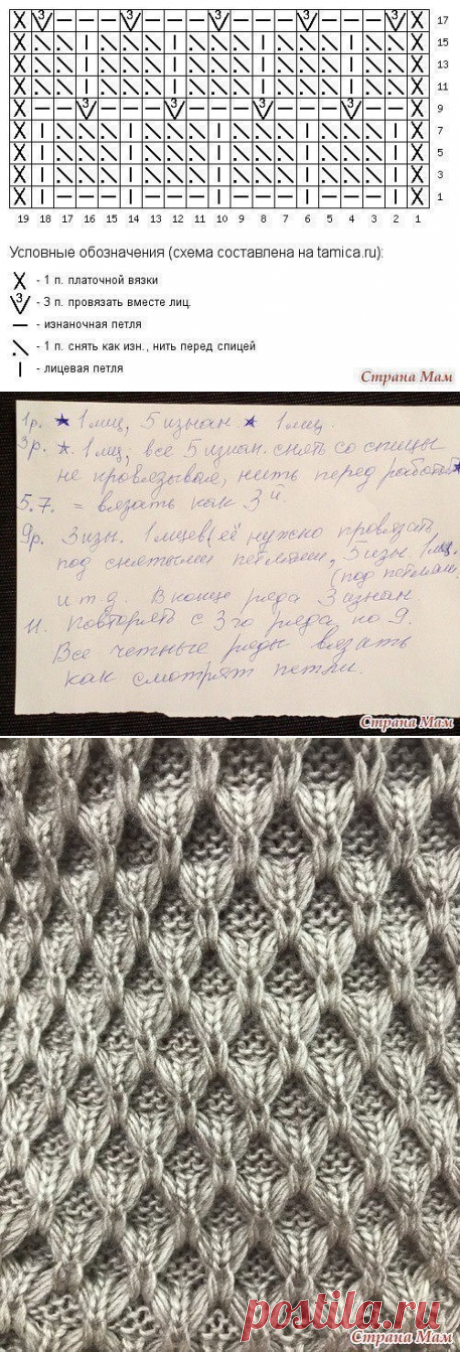 3 3 3 3 3 17
15
13
11
3 3 3 3 9
7
5
3
1
19 18 17 16 15 14 13 12 11 10 9 8 7 6 5 4 3 2 1
Условные обозначения (схема составлена на tamica.ru):
X - 1 п. платочной вязки
3 - 3 п. провязать вместе лиц.
— - изнаночная петля
- 1 п. снять как изн., нить перед спицей
I - лицевая петля
Страна Мам
1р. ★ 1 лиц, 5 изнан ★ 1 лиц.
3р. ★. 1 лиц, все 5 изнан. снять со спицы
не провязывая, нить перед работой ★
5.7. = вязать как 3й.
9р. 3 изн. 1 лицев (её нужно провязать
под снятыми петлями, 5 изн 1 лиц.
(под петлями
и т.д. В конце ряда 3 изнан
11. Повторять с 3го ряда по 9.
Все четные ряды вязать
как смотрят петли.
Страна Мам
postila.ru
Страна Мам